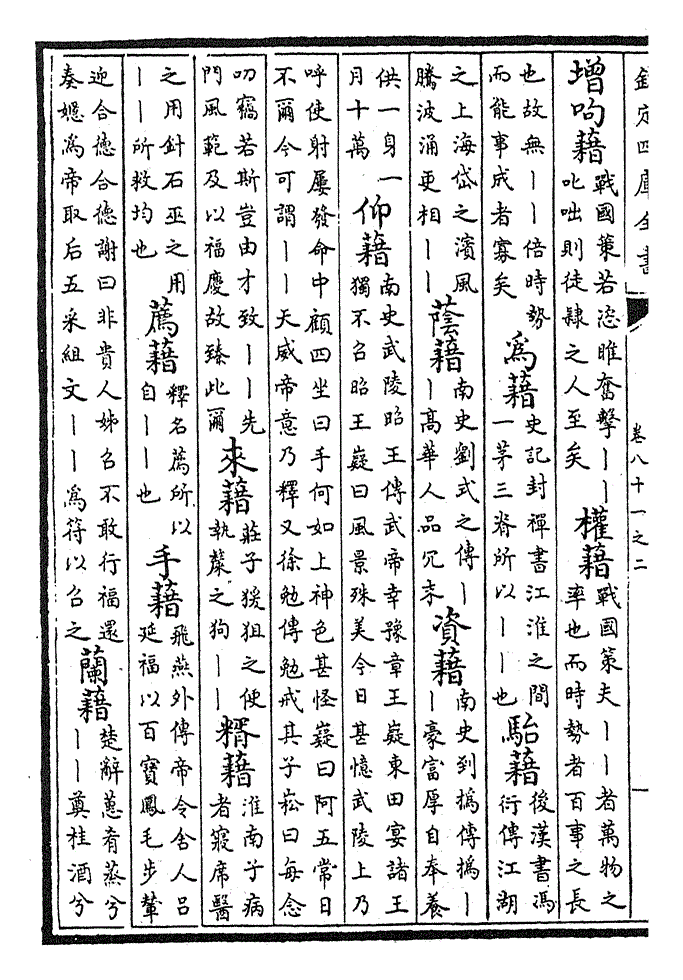 欽定四庫全書 卷八十一之二 一
增呴藉戰國策若恣睢奮擊丨丨叱咄則徒隸之人至矣權藉戰國策夫丨丨者萬物之率也而時勢者百事之長
也故無丨丨倍時勢而能事成者寡矣爲藉史記封禪書江淮之間一茅三脊所以丨丨也駘藉後漢書馮行傳江湖
之上海岱之濱風騰波涌更相丨丨蔭藉南史劉式之傳丨丨高華人品冗末資藉南史到撝傳撝丨丨豪富厚自奉養
供一身一月十萬仰藉南史武陵昭王傳武帝幸豫章王嶷東田宴諸王獨不召昭王嶷曰風景殊美今日甚憶武陵上乃
呼使射屢發命中顧四坐曰手何如上神色甚怪嶷曰阿五常日不爾今可謂丨丨天威帝意乃釋又徐勉傳勉戒其子崧曰每念
叨竊若斯豈由才致丨丨先門風範及以福慶故臻此爾來藉莊子猨狙之便執斄之狗丨丨糈藉淮南子病者寢席醫
之用針石巫之用丨丨所救均也薦藉釋名薦所以自丨丨也手藉飛燕外傳帝令舍人呂延福以百寶鳳毛步輦
迎合德合德謝曰非貴人姊召不敢行福還奏嬺爲帝取后五采組文丨丨爲符以召之蘭藉楚辭蕙肴蒸兮丨丨奠桂酒兮